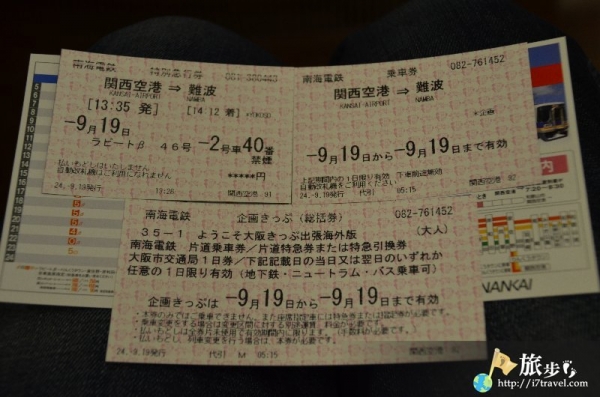 南海電鉄 特別急行券
関西空港 ⇒ 難波
KANSAI-AIRPORT NAMBA
[13:35 発] [14:12 着]
-9月19日
ラピートβ 46号 -2号車40番
禁煙
払いもどしはいたしません
自動改札機はご利用になれません
*****円
24.-9.19発行 13:26 関西空港
南海電鉄 乗車券 082-761452
関西空港 ⇒ 難波
KANSAI-AIRPORT NAMBA
*企画
-9月19日から-9月19日まで有効
上記期間内の1日限り有効 下車前途無効
自動改札機をご利用ください
24.-9.19発行 代引 05:15 関西空港
南海電鉄 企画きっぷ(総括券) 082-761452
35-1 ようこそ大阪きっぷ出張海外版 (大人)
南海電鉄 片道乗車券/片道特急券または特急引換券
大阪市交通局1日券/下記記載日の当日又は翌日のいずれか
任意の1日限り有効(地下鉄・ニュートラム・バス乗車可)
企画きっぷは-9月19日から-9月19日まで有効
24.-9.19発行 代引 M 05:15 関西空港
NANKAI
内
旅步
http://i7travel.com/